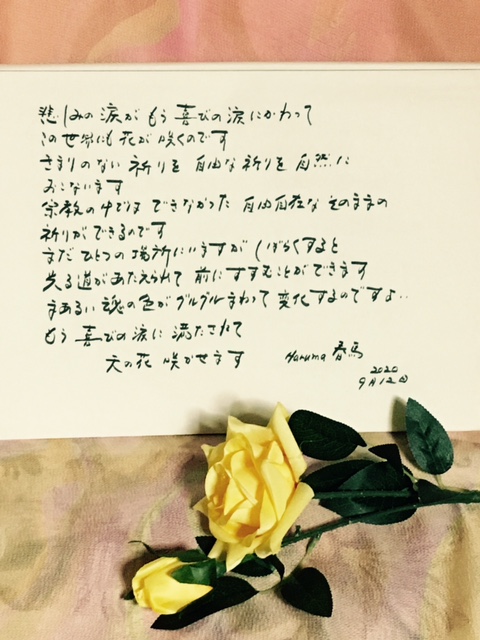 悲しみの涙がもう喜びの涙にかわって
この世界にも花が咲くのです
きまりのない祈りを自由な祈りを自然に
おこないます
宗教の中ではできなかった自由自在なそのままの
祈りができるのです
まだひとつの場所にいますがしばらくすると
光る道があたえられて前にすすむことができます
まあるい魂の色がグルグルまわって変化するのですよ..
もう喜びの涙に満たされて
天の花咲かせます
Haruma 春馬
2020
9月12日